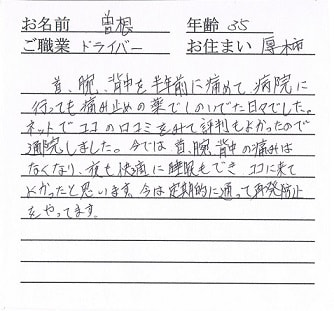 お名前 曽根 年齢 35
ご職業 ドライバー お住まい 厚木市
首、腕、背中を半年前に痛めて 病院に
行っても痛み止めの薬でしのいでた日々でした。
ネットでココの口コミをみて評判もよかったので
通院しました。今では首、腕 背中の痛みは
なくなり、夜も快適に睡眠もでき ココに来て
よかったと思います。今は定期的に通って再発防止
をやってます。